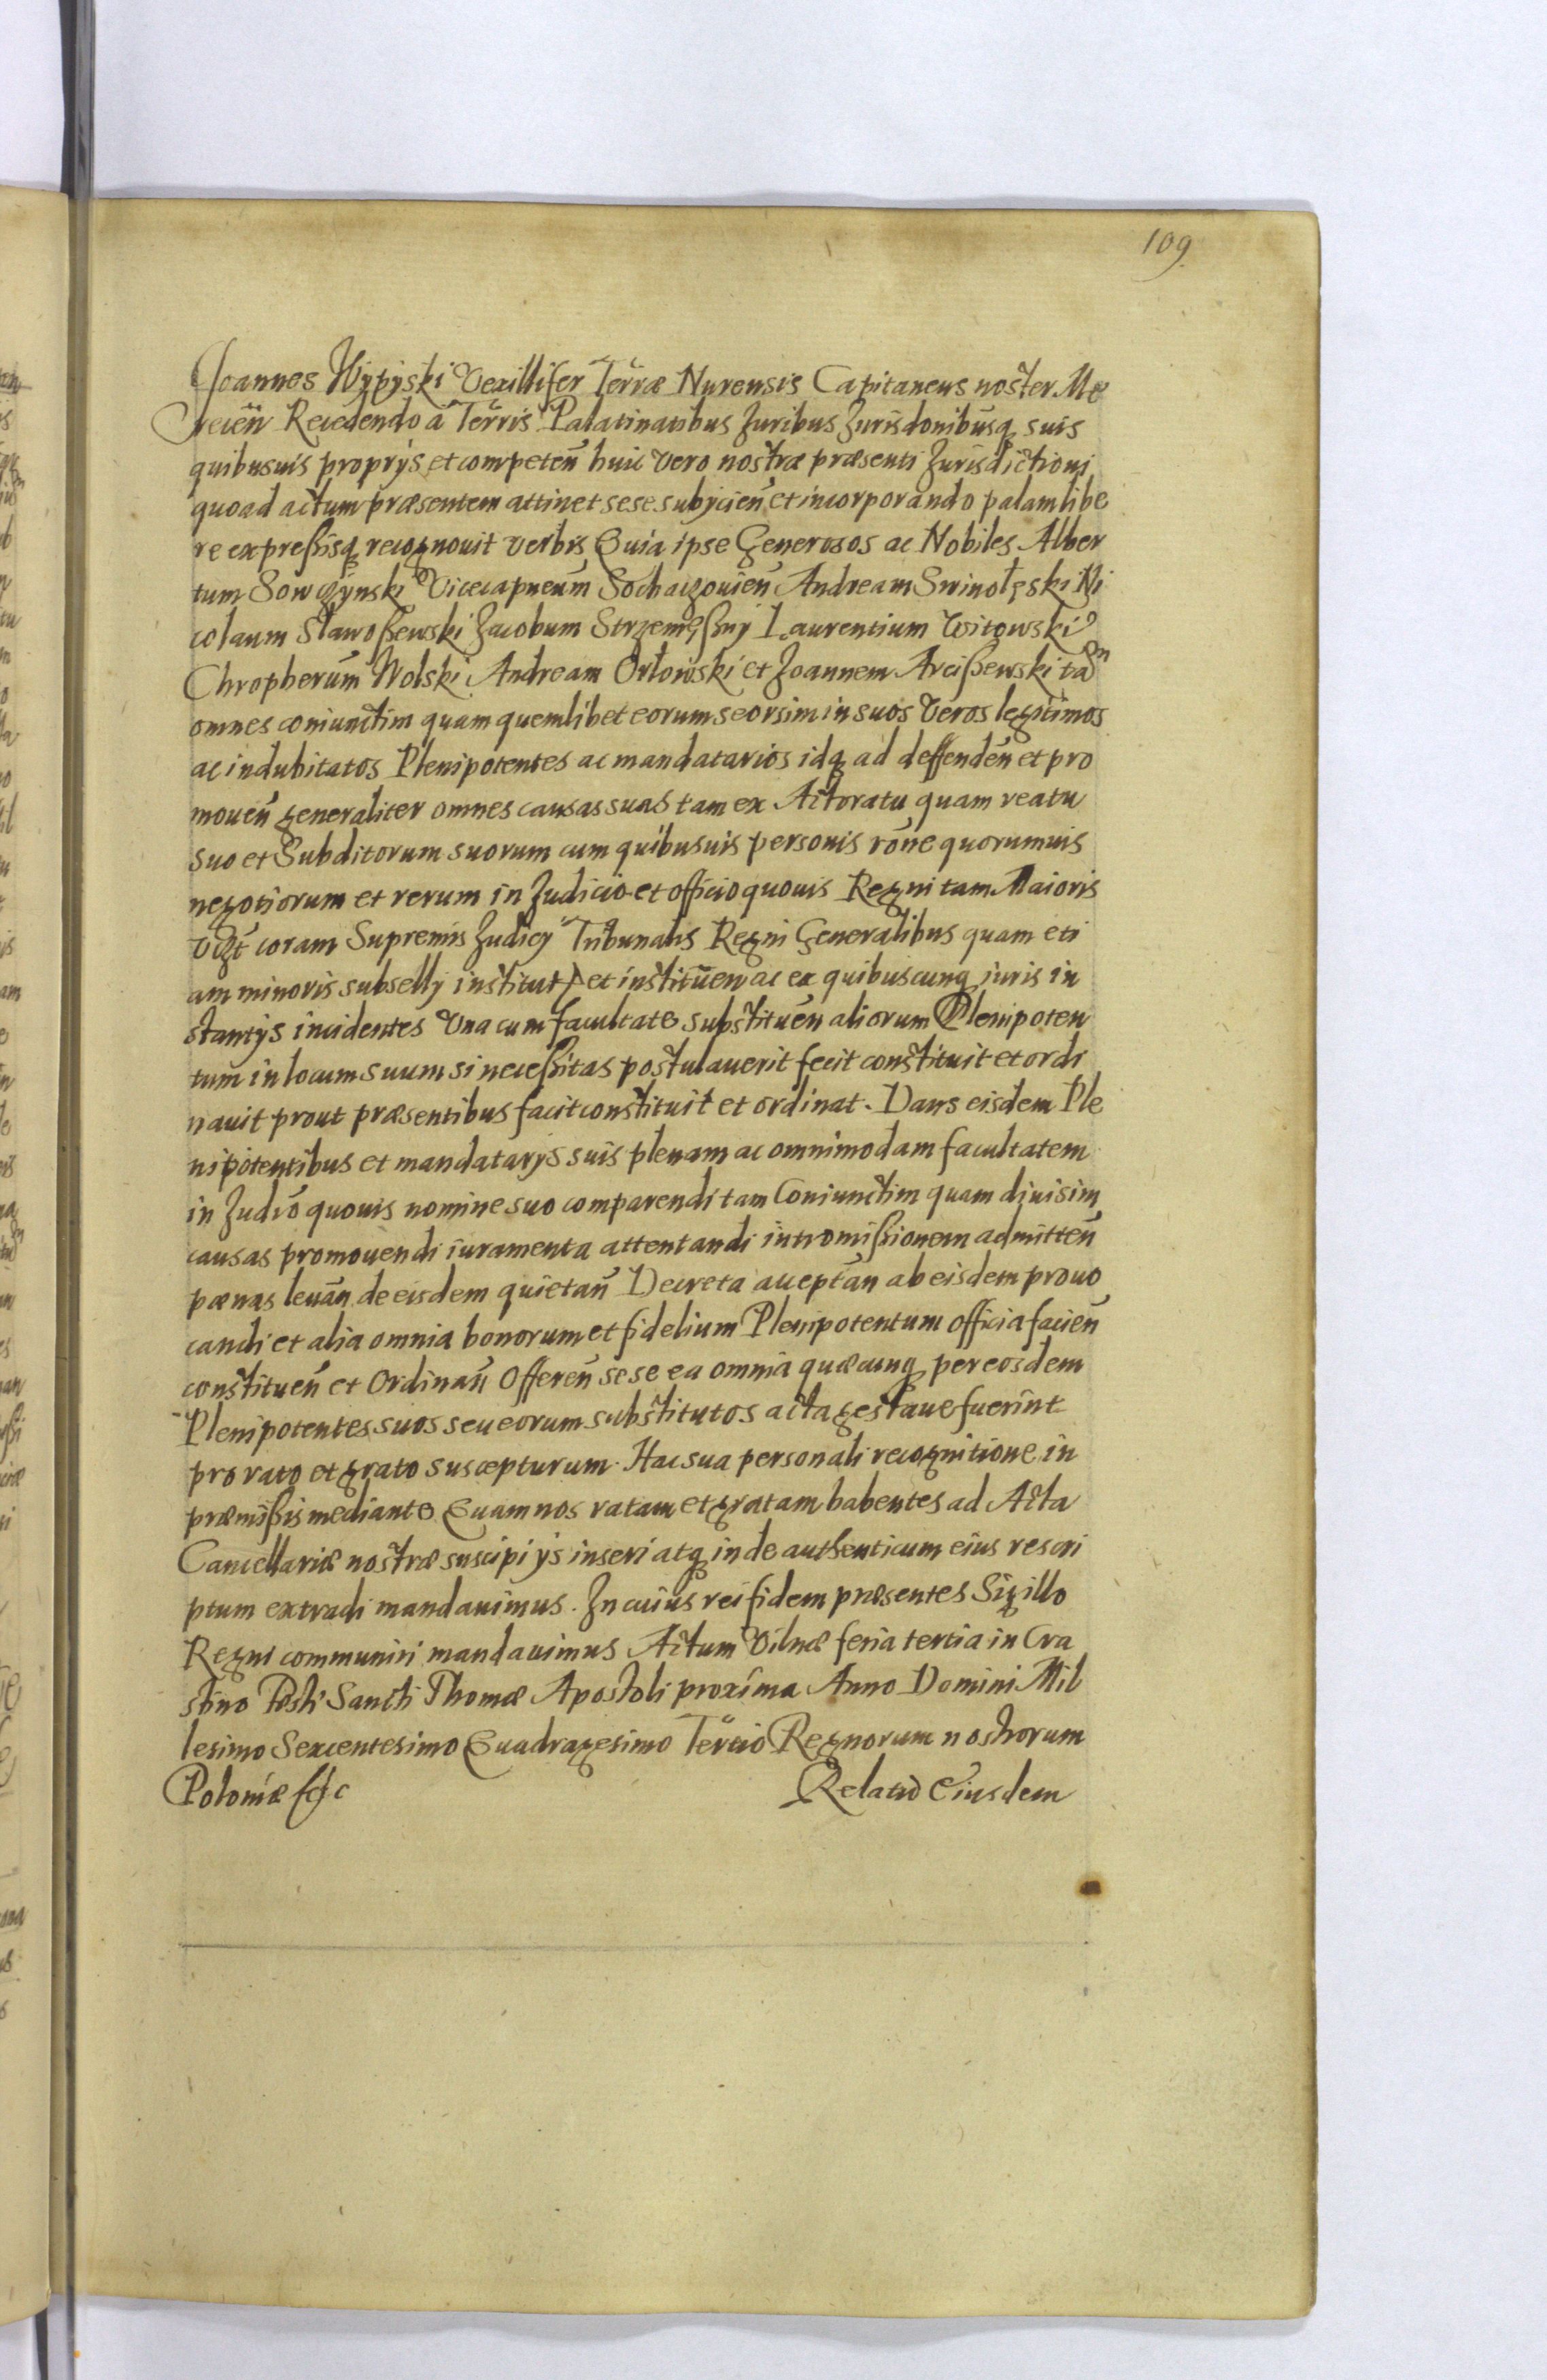 109.
Joannes Wypyski Vexillifer Terræ Nurensis Capitaneus noster Me
recien̄ Recedendo a Terris Palatinatibus Juribus Jurisdonibusq suis
quibusuis proprijs et competen̄ huic vero nostræ præsenti Jurisdictioni
quoad actum præsentem attinet sese subijcien̄ et incorporando palam libe
re expreßisq recognouit verbis Quia ipse Generosos ac Nobiles Alber
tum Sowczynski Vicecapneum Sochaczouien̄ Andream Swinołęski Ni
colaum Sławoßewski Jacobum Strzemęßny Laurentium Witowski
Chropherum Wolski Andream Orłowski et Joannem Arcißewski tam
omnes coniunctim quam quemlibet eorum seorsim in suos Veros legitimos
ac indubitatos Plenipotentes ac mandatarios idq ad deffenden̄ et pro
mouen̄ generaliter omnes causas suas tam ex Actoratu quam reatu
suo et Subditorum suorum cum quibusuis personis rōne quorumuis
negotiorum et rerum in Judicio et officio quouis Regni tam Maioris
vizt coram Supremis Judicij Tribunalis Regni Generalibus quam eti
am minoris subsellij institut et instituen̄ ac ex quibuscunq iuris in
stantijs incidentes Vna cum facultate substituen̄ aliorum Plenipoten
tum in locum suum si neceßitas postulauerit fecit constituit et ordi
nauit prout præsentibus facit constituit et ordinat. Dans eisdem Ple
nipotentibus et mandatarijs suis plenam ac omnimodam facultatem
in Judio quouis nomine suo comparendi tam Coniunctim quam diuisim
causas promouendi iuramenta attentandi intromißionem admitten̄
pænas leuan̄ de eisdem quietan̄ Decreta acceptan̄ ab eisdem prouo
candi et alia omnia bonorum et fidelium Plenipotentum officia facien̄
constituen̄ et Ordinan̄ Offeren̄ sese ea omnia quæcunq per eosdem
Plenipotentes suos seu eorum substitutos acta gestaue fuerint
pro rato et grato suscepturum. Hac sua personali recognitione in
præmißis mediante Quam nos ratam et gratam habentes ad Acta
Cancellariæ nostræ suscipi ijs inseri atq inde authenticum eius rescri
ptum extradi mandauimus. In cuius rei fidem præsentes Sigillo
Regni communiri mandauimus Actum Vilnæ feria tertia in Cra
stino Festi Sancti Thomæ Apostoli proxima Anno Domini Mil
lesimo Sexcentesimo Quadragesimo Tertio Regnorum nostrorum
Poloniæ &c Relatio Eiusdem